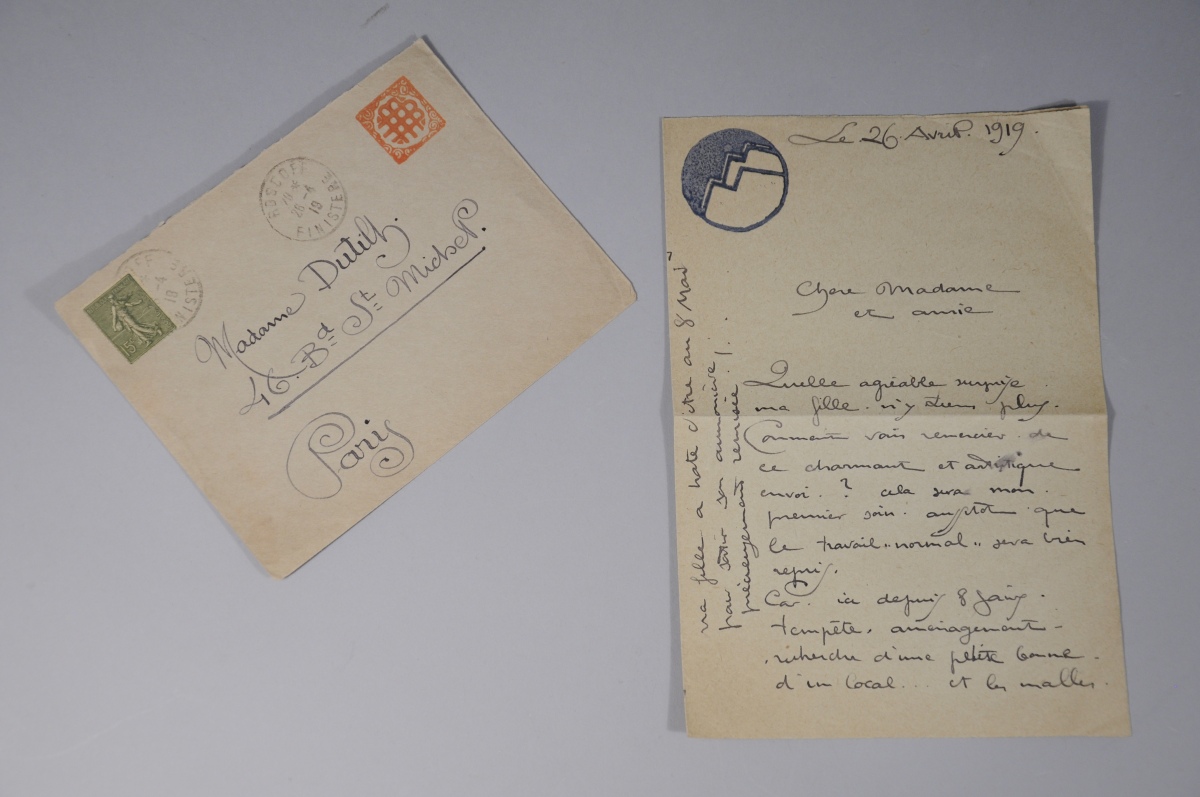 ROSCOFF
26 -4
19
FINISTERE
15c
Madame Dutilh.
46. Bd St Michel.
Paris
Le 26 Avril. 1919.
Chere Madame
et amie
Quelle agréable surprise.
ma fille. n'y tiens plus.
Comment vous remercier. de
ce charmant et artistique
envoi. ? cela sera mon.
premier soin. aussitot que
le travail "normal" sera bien
repris.
Car. ici depuis 8 jours.
tempête. aménagement -
recherche d'une petite bonne -
d'un local... et les malles.
ma fille a hate d'être au 8 Mai
pour sortir son aumonière,
précieusement remisée.